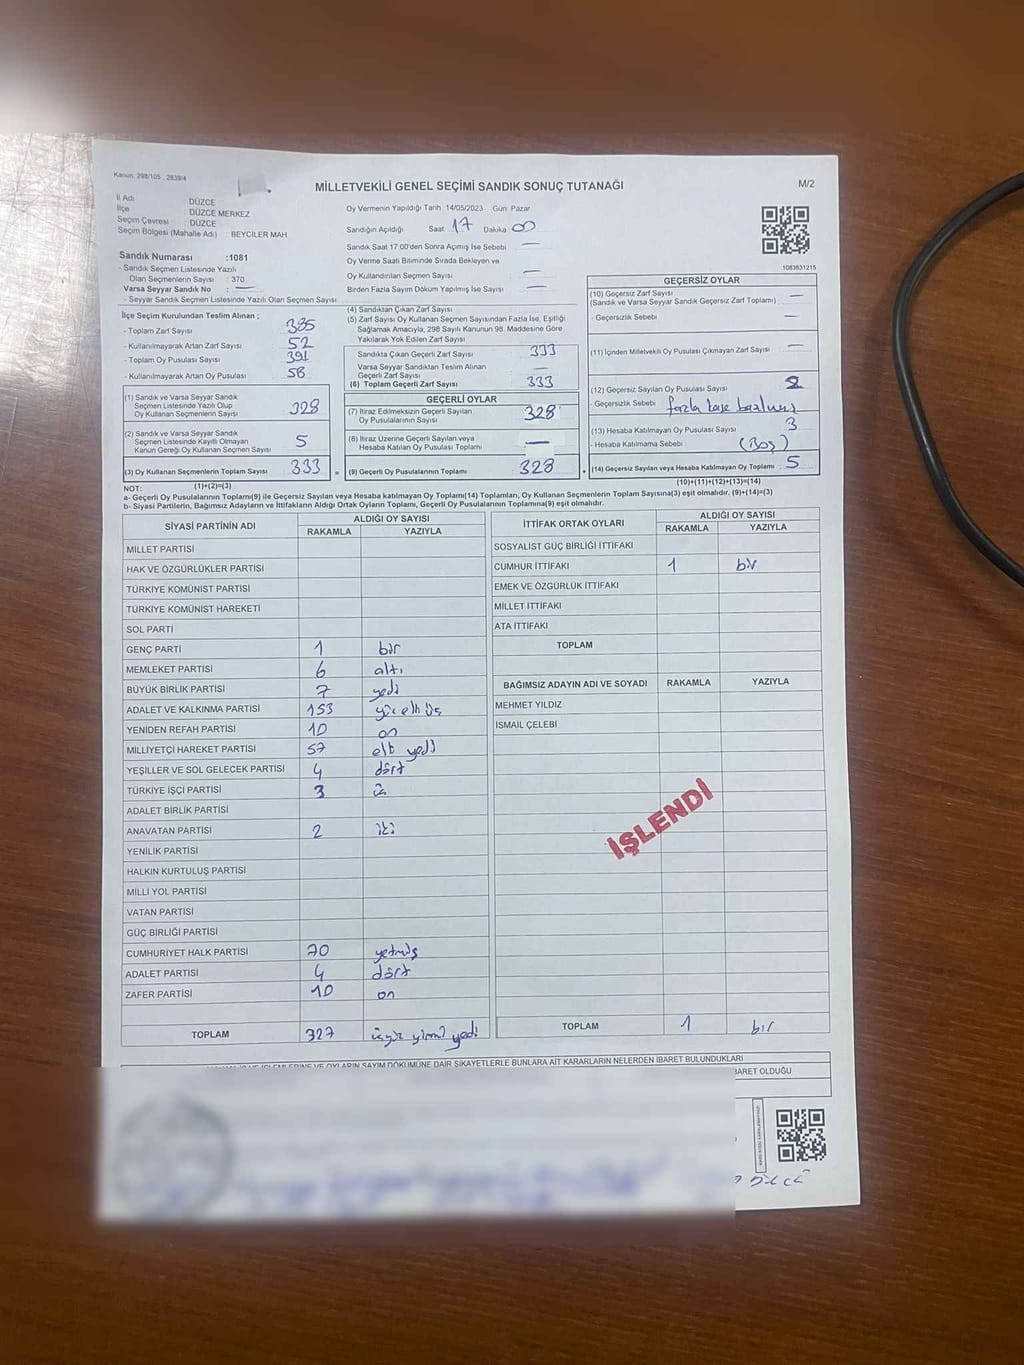 Kanun: 298/105 , 2839/4
MİLLETVEKİLİ GENEL SEÇİMİ SANDIK SONUÇ TUTANAĞI
M/2
İl Adı : DÜZCE
İlçe : DÜZCE MERKEZ
Seçim Çevresi : DÜZCE
Seçim Bölgesi (Mahalle Adı) : BEYCİLER MAH.
Sandık Numarası :1081
- Sandık Seçmen Listesinde Yazılı
Olan Seçmenlerin Sayısı : 370
Varsa Seyyar Sandık No : —
- Seyyar Sandık Seçmen Listesinde Yazılı Olan Seçmen Sayısı :
Oy Vermenin Yapıldığı Tarih :14/05/2023 Gün: Pazar
Sandığın Açıldığı Saat 17 Dakika 00
Sandık Saat 17:00'den Sonra Açımış İse Sebebi —
Oy Verme Saati Bitiminde Sırada Bekleyen ve
Oy Kullandırılan Seçmen Sayısı —
Birden Fazla Sayım Döküm Yapılmış İse Sayısı —
1083631215
İlçe Seçim Kurulundan Teslim Alınan ;
- Toplam Zarf Sayısı 385
- Kullanılmayarak Artan Zarf Sayısı 52
- Toplam Oy Pusulası Sayısı 391
- Kullanılmayarak Artan Oy Pusulası 58
(1) Sandık ve Varsa Seyyar Sandık
Seçmen Listesinde Yazılı Olup
Oy Kullanan Seçmenlerin Sayısı 328
(2) Sandık ve Varsa Seyyar Sandık
Seçmen Listesinde Kayıtlı Olmayan
Kanun Gereği Oy Kullanan Seçmen Sayısı 5
(3) Oy Kullanan Seçmenlerin Toplam Sayısı 333
(4) Sandıktan Çıkan Zarf Sayısı
(5) Zarf Sayısı Oy Kullanan Seçmen Sayısından Fazla İse, Eşitliği
Sağlamak Amacıyla, 298 Sayılı Kanunun 98. Maddesine Göre
Yakılarak Yok Edilen Zarf Sayısı
Sandıkta Çıkan Geçerli Zarf Sayısı 333
Varsa Seyyar Sandıktan Teslim Alınan
Geçerli Zarf Sayısı —
(6) Toplam Geçerli Zarf Sayısı 333
GEÇERLİ OYLAR
(7) İtiraz Edilmeksizin Geçerli Sayılan
Oy Pusulalarının Sayısı 328
(8) İtiraz Üzerine Geçerli Sayılan veya
Hesaba Katılan Oy Pusulası Toplamı —
= (9) Geçerli Oy Pusulalarının Toplamı 328 +
GEÇERSİZ OYLAR
(10) Geçersiz Zarf Sayısı —
(Sandık ve Varsa Seyyar Sandık Geçersiz Zarf Toplamı)
- Geçersizlik Sebebi : —
(11) İçinden Milletvekili Oy Pusulası Çıkmayan Zarf Sayısı —
(12) Geçersiz Sayılan Oy Pusulası Sayısı 2
- Geçersizlik Sebebi : fazla kaşe basılmış
(13) Hesaba Katılmayan Oy Pusulası Sayısı 3
- Hesaba Katılmama Sebebi : (Boş)
(14) Geçersiz Sayılan veya Hesaba Katılmayan Oy Toplamı 5
NOT: (1)+(2)=(3)
(10)+(11)+(12)+(13)=(14)
a- Geçerli Oy Pusulalarının Toplamı(9) ile Geçersiz Sayılan veya Hesaba katılmayan Oy Toplamı(14) Toplamları, Oy Kullanan Seçmenlerin Toplam Sayısına(3) eşit olmalıdır. (9)+(14)=(3)
b- Siyasi Partilerin, Bağımsız Adayların ve İttifakların Aldığı Ortak Oyların Toplamı, Geçerli Oy Pusulalarının Toplamına(9) eşit olmalıdır.
SİYASİ PARTİNİN ADI ALDIĞI OY SAYISI
RAKAMLA YAZIYLA
MİLLET PARTİSİ
HAK VE ÖZGÜRLÜKLER PARTİSİ
TÜRKİYE KOMÜNİST PARTİSİ
TÜRKİYE KOMÜNİST HAREKETİ
SOL PARTİ
GENÇ PARTİ 1 bir
MEMLEKET PARTİSİ 6 altı
BÜYÜK BİRLİK PARTİSİ 7 yedi
ADALET VE KALKINMA PARTİSİ 153 yüz elli üç
YENİDEN REFAH PARTİSİ 10 on
MİLLİYETÇİ HAREKET PARTİSİ 57 elli yedi
YEŞİLLER VE SOL GELECEK PARTİSİ 4 dört
TÜRKİYE İŞÇİ PARTİSİ 3 üç
ADALET BİRLİK PARTİSİ
ANAVATAN PARTİSİ 2 iki
YENİLİK PARTİSİ
HALKIN KURTULUŞ PARTİSİ
MİLLİ YOL PARTİSİ
VATAN PARTİSİ
GÜÇ BİRLİĞİ PARTİSİ
CUMHURİYET HALK PARTİSİ 70 yetmiş
ADALET PARTİSİ 4 dört
ZAFER PARTİSİ 10 on
TOPLAM 327 üçyüz yirmi yedi
İTTİFAK ORTAK OYLARI ALDIĞI OY SAYISI
RAKAMLA YAZIYLA
SOSYALİST GÜÇ BİRLİĞİ İTTİFAKI
CUMHUR İTTİFAKI 1 bir
EMEK VE ÖZGÜRLÜK İTTİFAKI
MİLLET İTTİFAKI
ATA İTTİFAKI
TOPLAM
BAĞIMSIZ ADAYIN ADI VE SOYADI RAKAMLA YAZIYLA
MEHMET YILDIZ
İSMAİL ÇELEBİ
İŞLENDİ
TOPLAM 1 bir
İŞLEMLERİNE VE OYLARIN SAYIM DÖKÜMÜNE DAİR ŞİKAYETLERLE BUNLARA AİT KARARLARIN NELERDEN İBARET BULUNDUKLARI
İBARET OLDUĞU